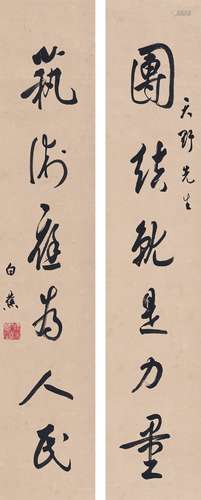 團结就是力量
天野先生
藝術应为人民
白蕉